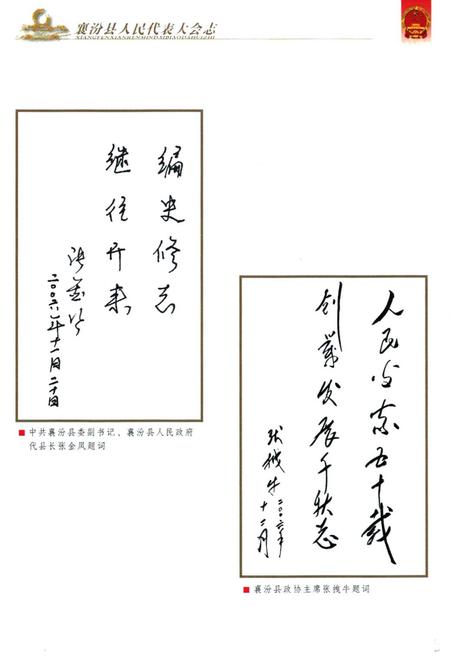 襄汾县人民代表大会志
XIANGFENXIANRENMINDAIBIAODAHUIZHI
编史修志
继往开来
张金凤
二〇〇六年十一月二十四日
■中共襄汾县委副书记、襄汾县人民政府
代县长张金凤题词
人民当家五十载
创业发展千秋志
张拽牛二〇〇六年
十二月
■襄汾县政协主席张拽牛题词